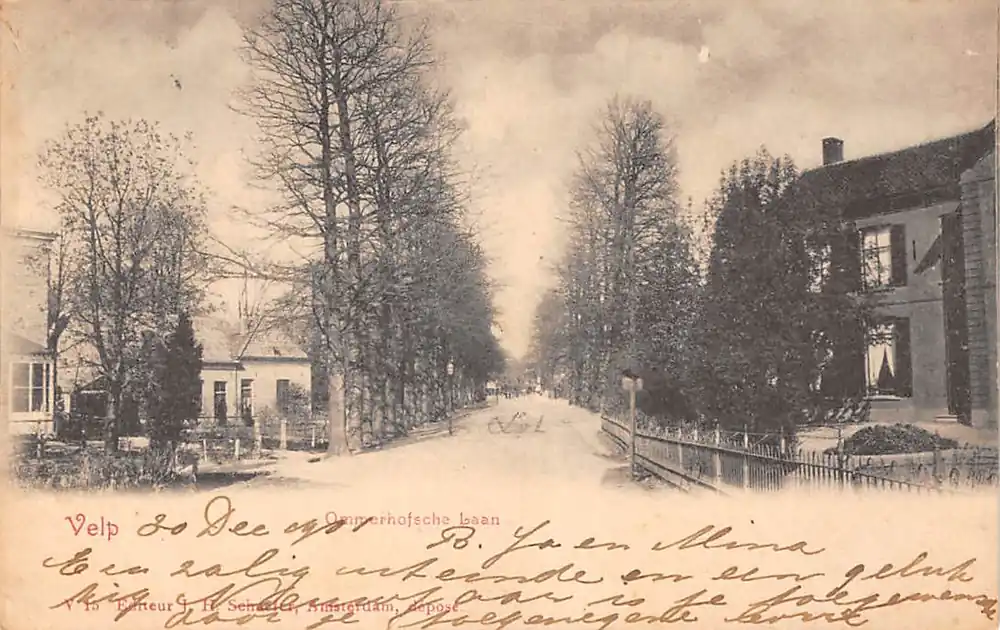 Velp 30 Dec 1901 Ommerhofsche Laan
B. Ja en Mina
Een zalig uiteinde en een geluk
kig Nieuwjaar is je toegewenscht
V 15 Editeur J. H. Schaefer, Amsterdam, déposé.
door je toegenegene